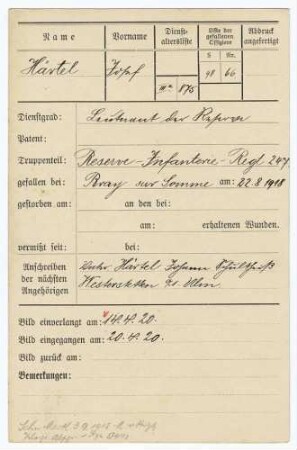 Name Vorname Dienst-altersliste Liste der gefallenen Offiziere Abdruck angefertigt
S. Nr.
Härtel Josef Nr. 875 91 66
Dienstgrad: Leutnant der Reserve
Patent:
Truppenteil: Reserve-Infanterie-Regt 247
gefallen bei: Bray sur Somme am: 22.8.1918
gestorben am: an den bei:
am: erhaltenen Wunden.
vermißt seit: bei:
Anschreiben Härtel Johann Schultheiß
der nächsten Westerstetten Ulm
Angehörigen
Bild einverlangt am: 14.4.20.
Bild eingegangen am: 20.4.20.
Bild zurück am:
Bemerkungen: